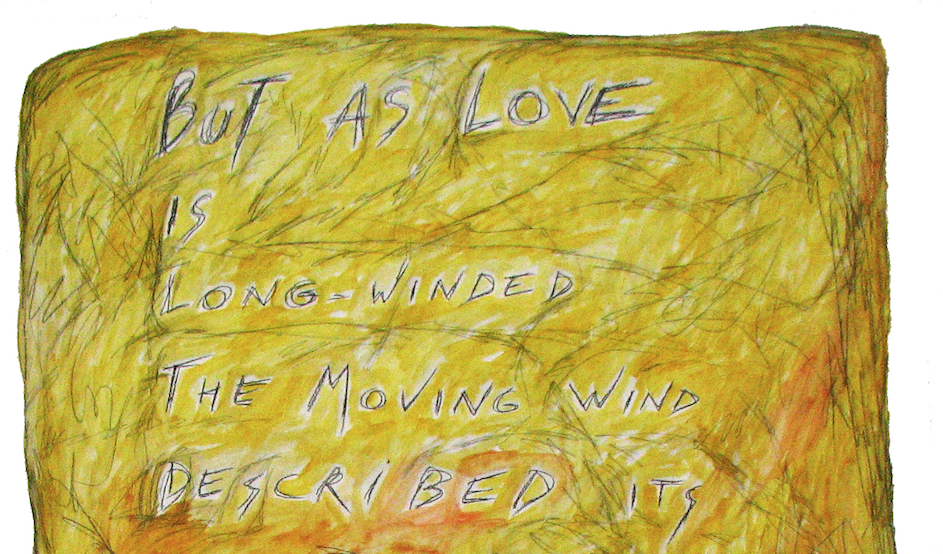 BUT AS LOVE
IS
LONG-WINDED
THE MOVING WIND
DESCRIBED ITS